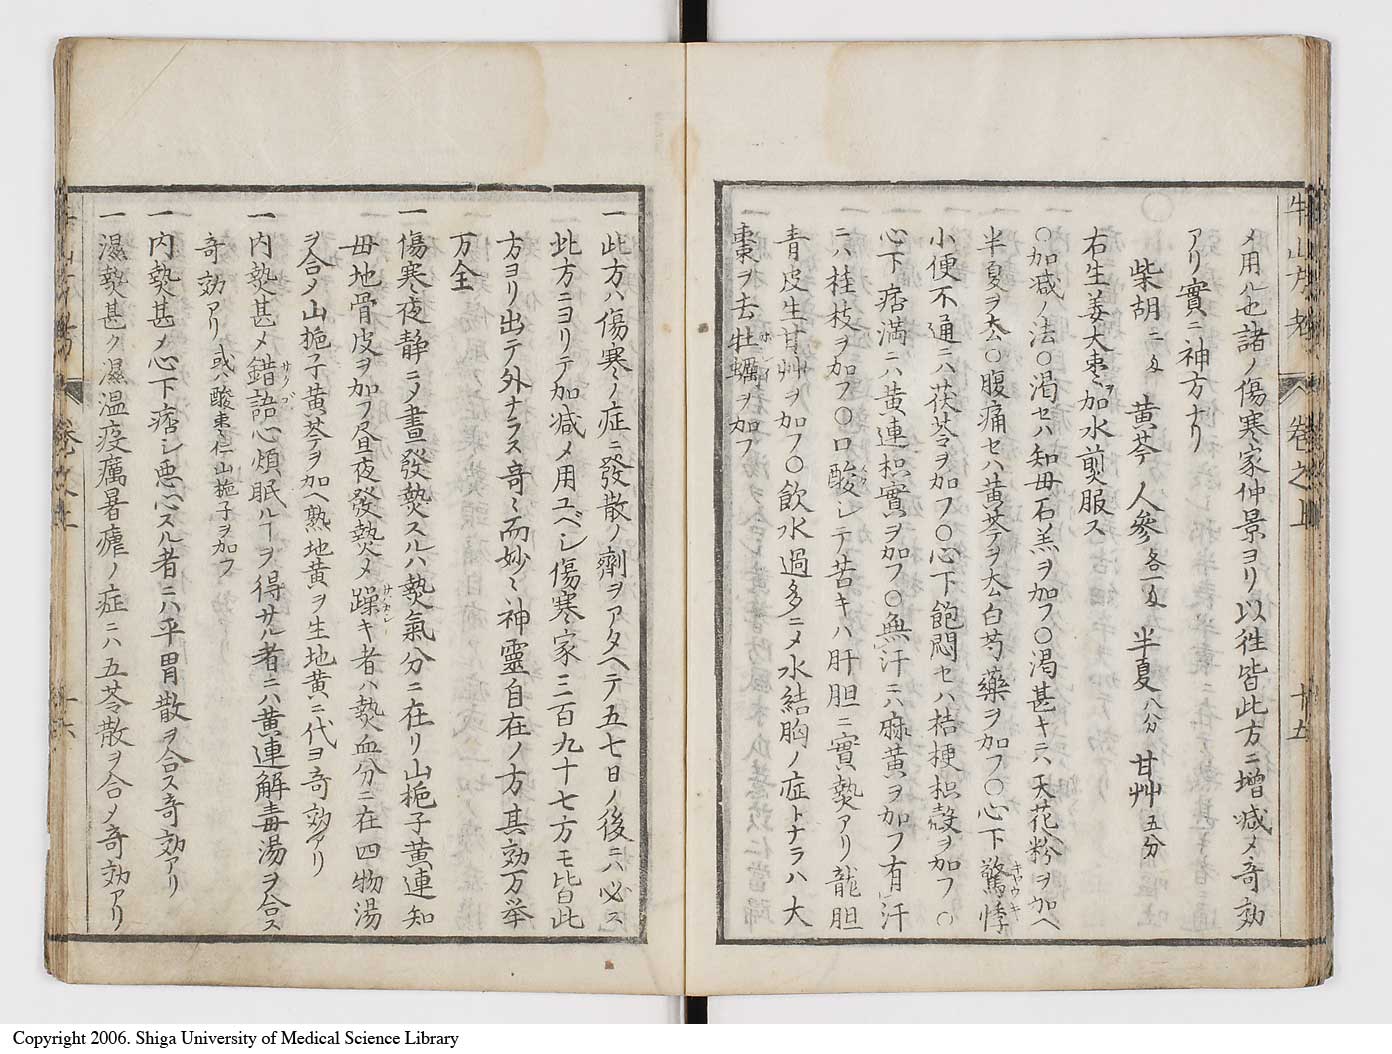 牛山方考 卷之上 廿五
メ用ル也諸ノ傷寒家仲景ヨリ以徃皆此方ニ增减メ奇効
アリ實ニ神方ナリ
柴胡二匁 黄芩 人參各一匁 半夏八分 甘艸五分
右生姜大枣ヲ加水煎服ス
○加减ノ法○渴セハ知母石羔ヲ加フ○渴甚キニハ天花粉ヲ加ヘ
半夏ヲ去○腹痛セハ黄芩ヲ去白芍藥ヲ加フ○心下驚悸
小便不通ニハ茯苓ヲ加フ○心下飽悶セハ桔梗枳殼ヲ加フ○
心下痞滿ニハ黄連枳實ヲ加フ○無汗ニハ麻黄ヲ加フ有汗
ニハ桂枝ヲ加フ○口酸シテ苦キハ肝胆ニ實𤍠アリ龍胆
青皮生甘艸ヲ加フ○飲水過多ニメ水結胸ノ症トナラハ大
棗ヲ去牡蠣ヲ加フ
一此方ハ傷寒ノ症ニ發散ノ劑ヲアタヘテ五七日ノ後ニハ必ス
此方ニヨリテ加减メ用ユベシ傷寒家三百九十七方モ皆此
方ヨリ出テ外ナラス奇ミ而妙ミ神靈自在ノ方其効万举
万全
一傷寒夜静ニメ晝發𤍠スルハ𤍠氣分ニ在リ山梔子黄連知
母地骨皮ヲ加フ昼夜發𤍠メ躁キ者ハ𤍠血分ニ在四物湯
ヲ合ノ山梔子黄芩ヲ加ヘ熟地黄ヲ生地黄ニ代ヨ奇効アリ
一内𤍠甚メ錯語心煩眠ルヿヲ得サル者ニハ黄連解毒湯ヲ合ス
奇効アリ或ハ酸枣仁山梔子ヲ加フ
一内𤍠甚ノ心下痞シ悪心スル者ニハ平胃散ヲ合ス奇効アリ
一濕𤍠甚ク濕温疫癘暑瘧ノ症ニハ五苓散ヲ合メ奇効アリ
Copyright 2006. Shiga University of Medical Science Library